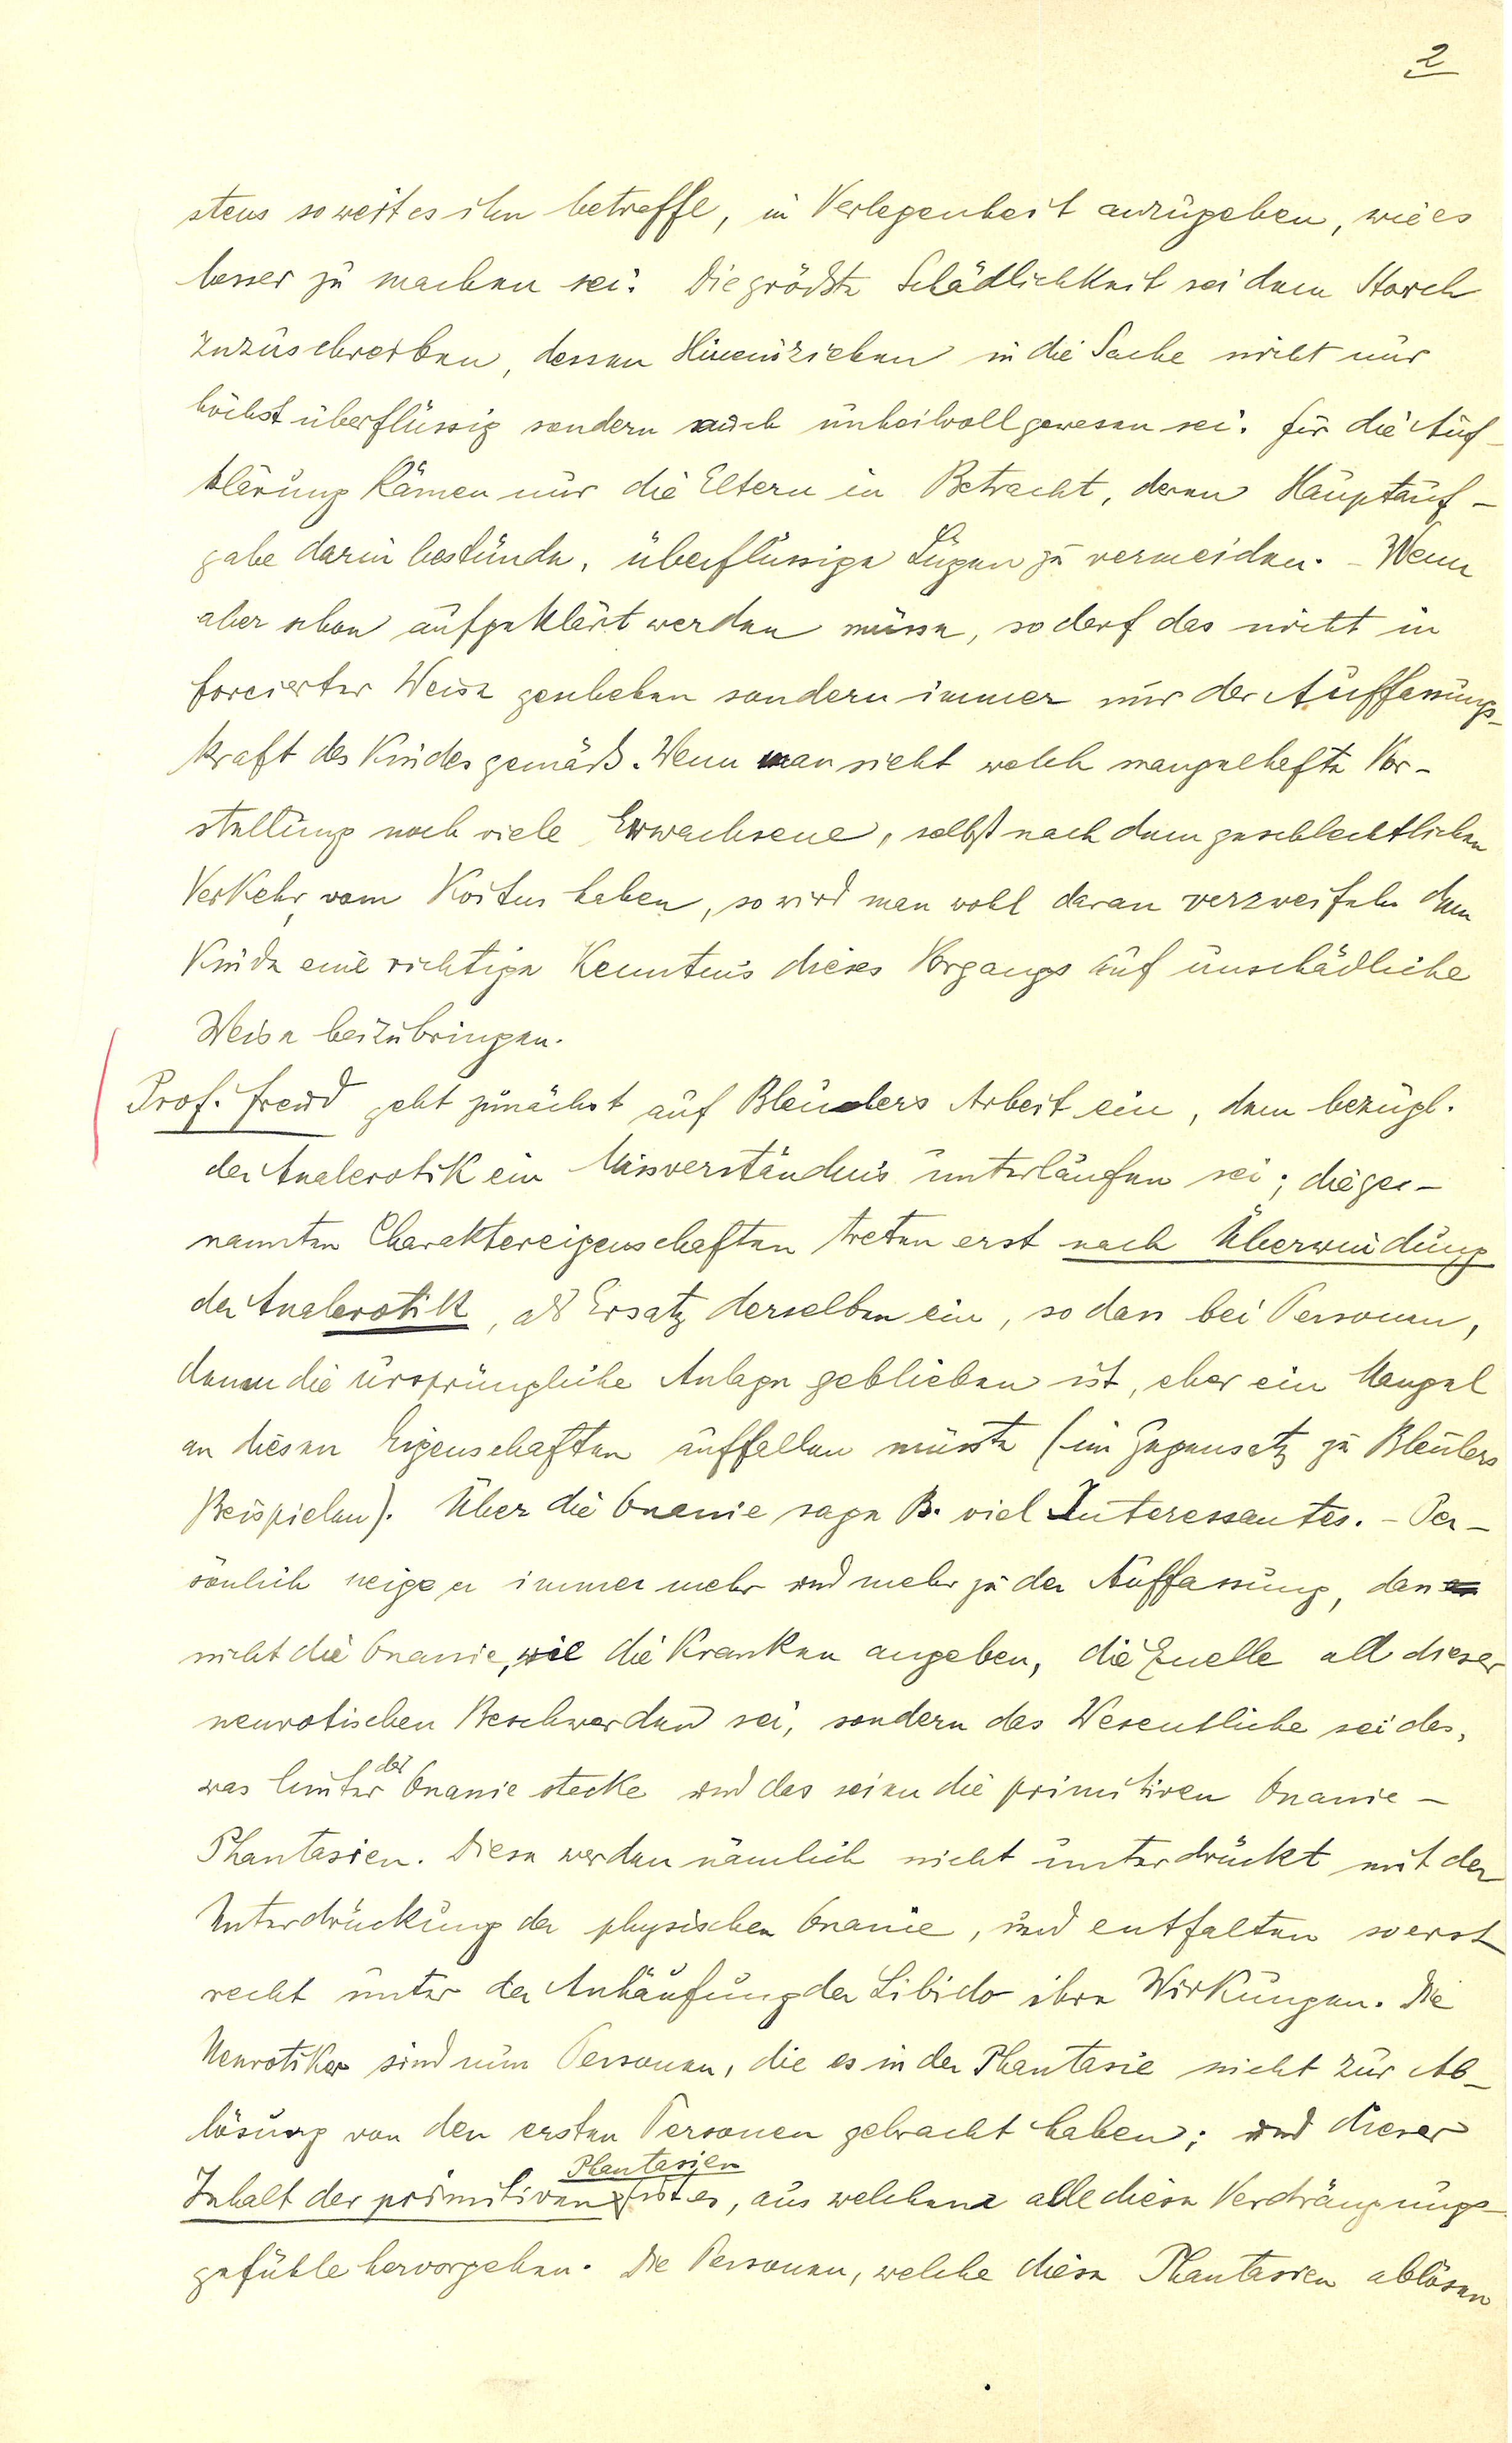 2
stens soweit es ihn betreffe, in Verlegenheit anzugeben, wie es
besser zu machen sei. Die größte Schädlichkeit sei dem Storch
zuzuschreiben, dessen Hineinziehen in die Sache nicht nur
höchst überflüssig sondern auch unheilvoll gewesen sei. Für die Auf-
klärung kämen nur die Eltern in Betracht, deren Hauptauf-
gabe darin bestünde, überflüssige Lügen zu vermeiden. – Wenn
aber schon aufgeklärt werden müsse, so darf das nicht in
forcierter Weise geschehen sondern immer nur der Auffassungs-
kraft des Kindes gemäß. Wenn man sieht welch mangelhafte Vor-
stellung noch viele Erwachsene, selbst nach dem geschlechtlichen
Verkehr, vom Koitus haben, so wird man wohl daran verzweifeln dem
Kinde eine richtige Kenntnis dieses Vorgangs auf unschädliche
Weise beizubringen.
Prof. Freud geht zunächst auf Bleulers Arbeit ein, dem bezügl.
der Analerotik ein Missverständnis unterlaufen sei; die ge-
nannten Charaktereigenschaften treten erst nach Überwindung
der Analerotik, als Ersatz derselben ein, so dass bei Personen,
denen die ursprüngliche Anlage geblieben ist, eher ein Mangel
an diesen Eigenschaften auffallen müsste (im Gegensatz zu Bleulers
Beispielen). Über die Onanie sage B. viel Interessantes. – Per-
sönlich neige er immer mehr und mehr zu der Auffassung, dass
nicht die Onanie, wie die Kranken angeben, die Quelle all dieser
neurotischen Beschwerden sei, sondern das Wesentliche sei das,
was hinter der Onanie stecke und das seien die primitiven Onanie-
Phantasien. Diese werden nämlich nicht unterdrückt mit der
Unterdrückung der physischen Onanie, und entfalten so erst
recht unter der Anhäufung der Libido ihre Wirkungen. Die
Neurotiker sind nun Personen, die es in der Phantasie nicht zur Ab-
lösung von den ersten Personen gebracht haben; und dieser
Inhalt der primitiven Phantasien ist es, aus welchem alle diese Verdrängungs-
gefühle hervorgehen. Die Personen, welche diese Phantasien ablösen